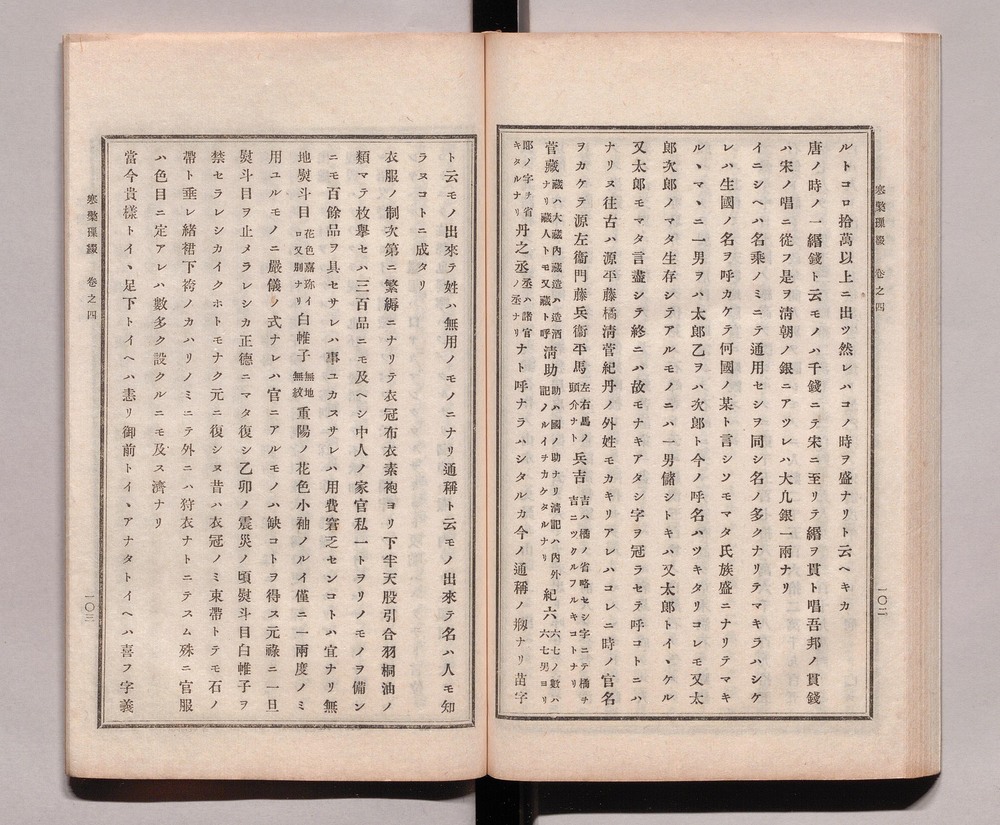 寒檠璅綴　卷之四
一〇二
ルトコロ拾萬以上ニ出ツ然レハコノ時ヲ盛ナリト云ヘキカ
唐ノ時ノ一緡錢ト云モノハ千錢ニテ宋ニ至リテ緡ヲ貫ト唱吾邦ノ貫錢
ハ宋ノ唱ニ從フ是ヲ清朝ノ銀ニアツレハ大凡銀一兩ナリ
イニシヘハ名乘ノミニテ通用セシヲ同シ名ノ多クナリテマキラハシケ
レハ生國ノ名ヲ呼カケテ何國ノ某ト言シソモマタ氏族盛ニナリテマキ
ルヽマヽニ一男ヲハ太郎乙ヲハ次郎ト今ノ呼名ハツキタリコレモ又太
郎次郎ノマタ生存シテアルモノニハ一男儲シトキハ又太郎トイヽケル
又太郎モマタ言盡シテ終ニハ故モナキアタシ字ヲ冠ラセテ呼コトニハ
ナリヌ往古ハ源平藤橘清菅紀丹ノ外姓モカキリアレハコレニ時ノ官名
ヲカケテ源左衞門藤兵衞平馬左右馬ノ頭介ナト兵吉吉ハ橘ノ省略セシ字ニテ橘チ吉ニツクルフルキコトナリ
菅藏藏ハ大藏内藏造ハ造酒ナリ藏人トモ又藏ト呼清助助ハ國ノ助ナリ清記ハ内外記ノルイヲカケタルナリ紀六六七ノ數ハ六七男ヨリ
郎ノ字ヲ省キタルナリ丹之丞丞ハ諸官ノ丞ナリナト呼ナラハシタルカ今ノ通稱ノ剏ナリ苗字
ト云モノ出來テ姓ハ無用ノモノニナリ通稱ト云モノ出來テ名ハ人モ知
ラヌコトニ成タリ
衣服ノ制次第ニ繁縟ニナリテ衣冠布衣素袍ヨリ下半天股引合羽桐油ノ
類マテ枚擧セハ三百品ニモ及ヘシ中人ノ家官私一トヲリノモノヲ備ン
ニモ百餘品ヲ具セサレハ事ユカスサレハ用費窘乏センコトハ宜ナリ無
地熨斗目花色嘉珎イロ又剏ナリ白帷子無地無紋重陽ノ花色小袖ノルイ僅ニ一兩度ノミ
用ユルモノニ嚴儀ノ式ナレハ官ニアルモノハ缺コトヲ得ス元祿ニ一旦
熨斗目ヲ止メラレシカ正德ニマタ復シ乙卯ノ震災ノ頃熨斗目白帷子ヲ
禁セラレシカイクホトモナク元ニ復シヌ昔ハ衣冠ノミ束帶トテモ石ノ
帶ト垂レ緒裙下袴ノカハリノミニテ外ニハ狩衣ナトニテスム殊ニ官服
ハ色目ニ定アレハ數多ク設クルニモ及ス濟ナリ
當今貴樣トイヽ足下トイヘハ恚リ御前トイヽアナタトイヘハ喜フ字義
寒檠璅綴　卷之四
一〇三